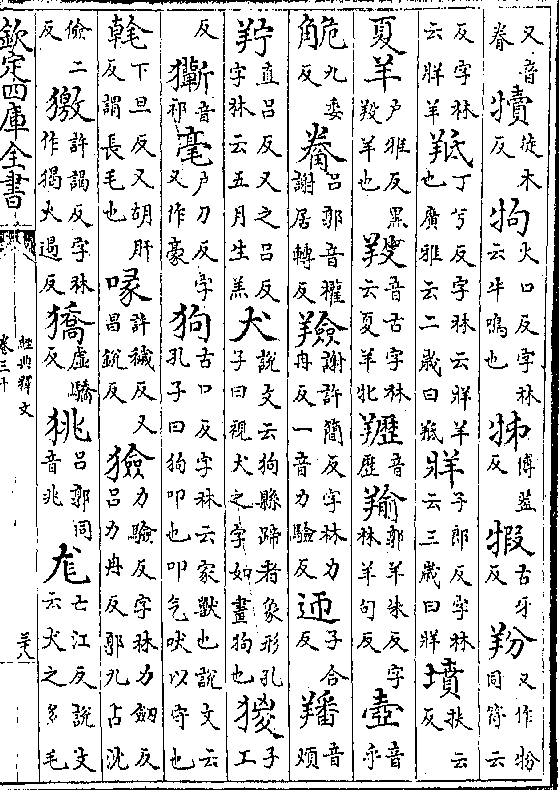 又音眷犢徒木反㸸火口反字林云牛鳴也㸬博蓋反犌古牙反羒又作㸮同符云
反字林云牂羊羝丁兮反字林云牂羊也廣雅云二歲曰羝牂子郎反字林云三歲曰牂墳扶云反
夏羊戶雅反黑羖羊也羖音古字林云夏羊牝䍽音歷羭郭羊朱反字林羊句反壺音乎
角危九委反觠呂郭音權謝居轉反羷謝許簡反字林力冉反一音力驗反迊子合反羳音煩
羜直呂反又之呂反字林云五月生羔犬說文云狗縣蹄者象形孔子曰視犬之字如畫狗也猣子工
反㺂音祁毫戶刀反字又作豪狗古口反字林云家獸也說文云孔子曰狗叩也叩气吠以守也
毼下旦反又胡肝反謂長毛也喙許穢反又昌銳反獫力驗反字林力劒反呂力冉反郭九占沈
儉二反獥許謁反字林作猲火遏反獢虛驕反狣呂郭同音兆尨亡江反說文云犬之多毛
欽定四庫全書
經典釋文
卷三十
三八